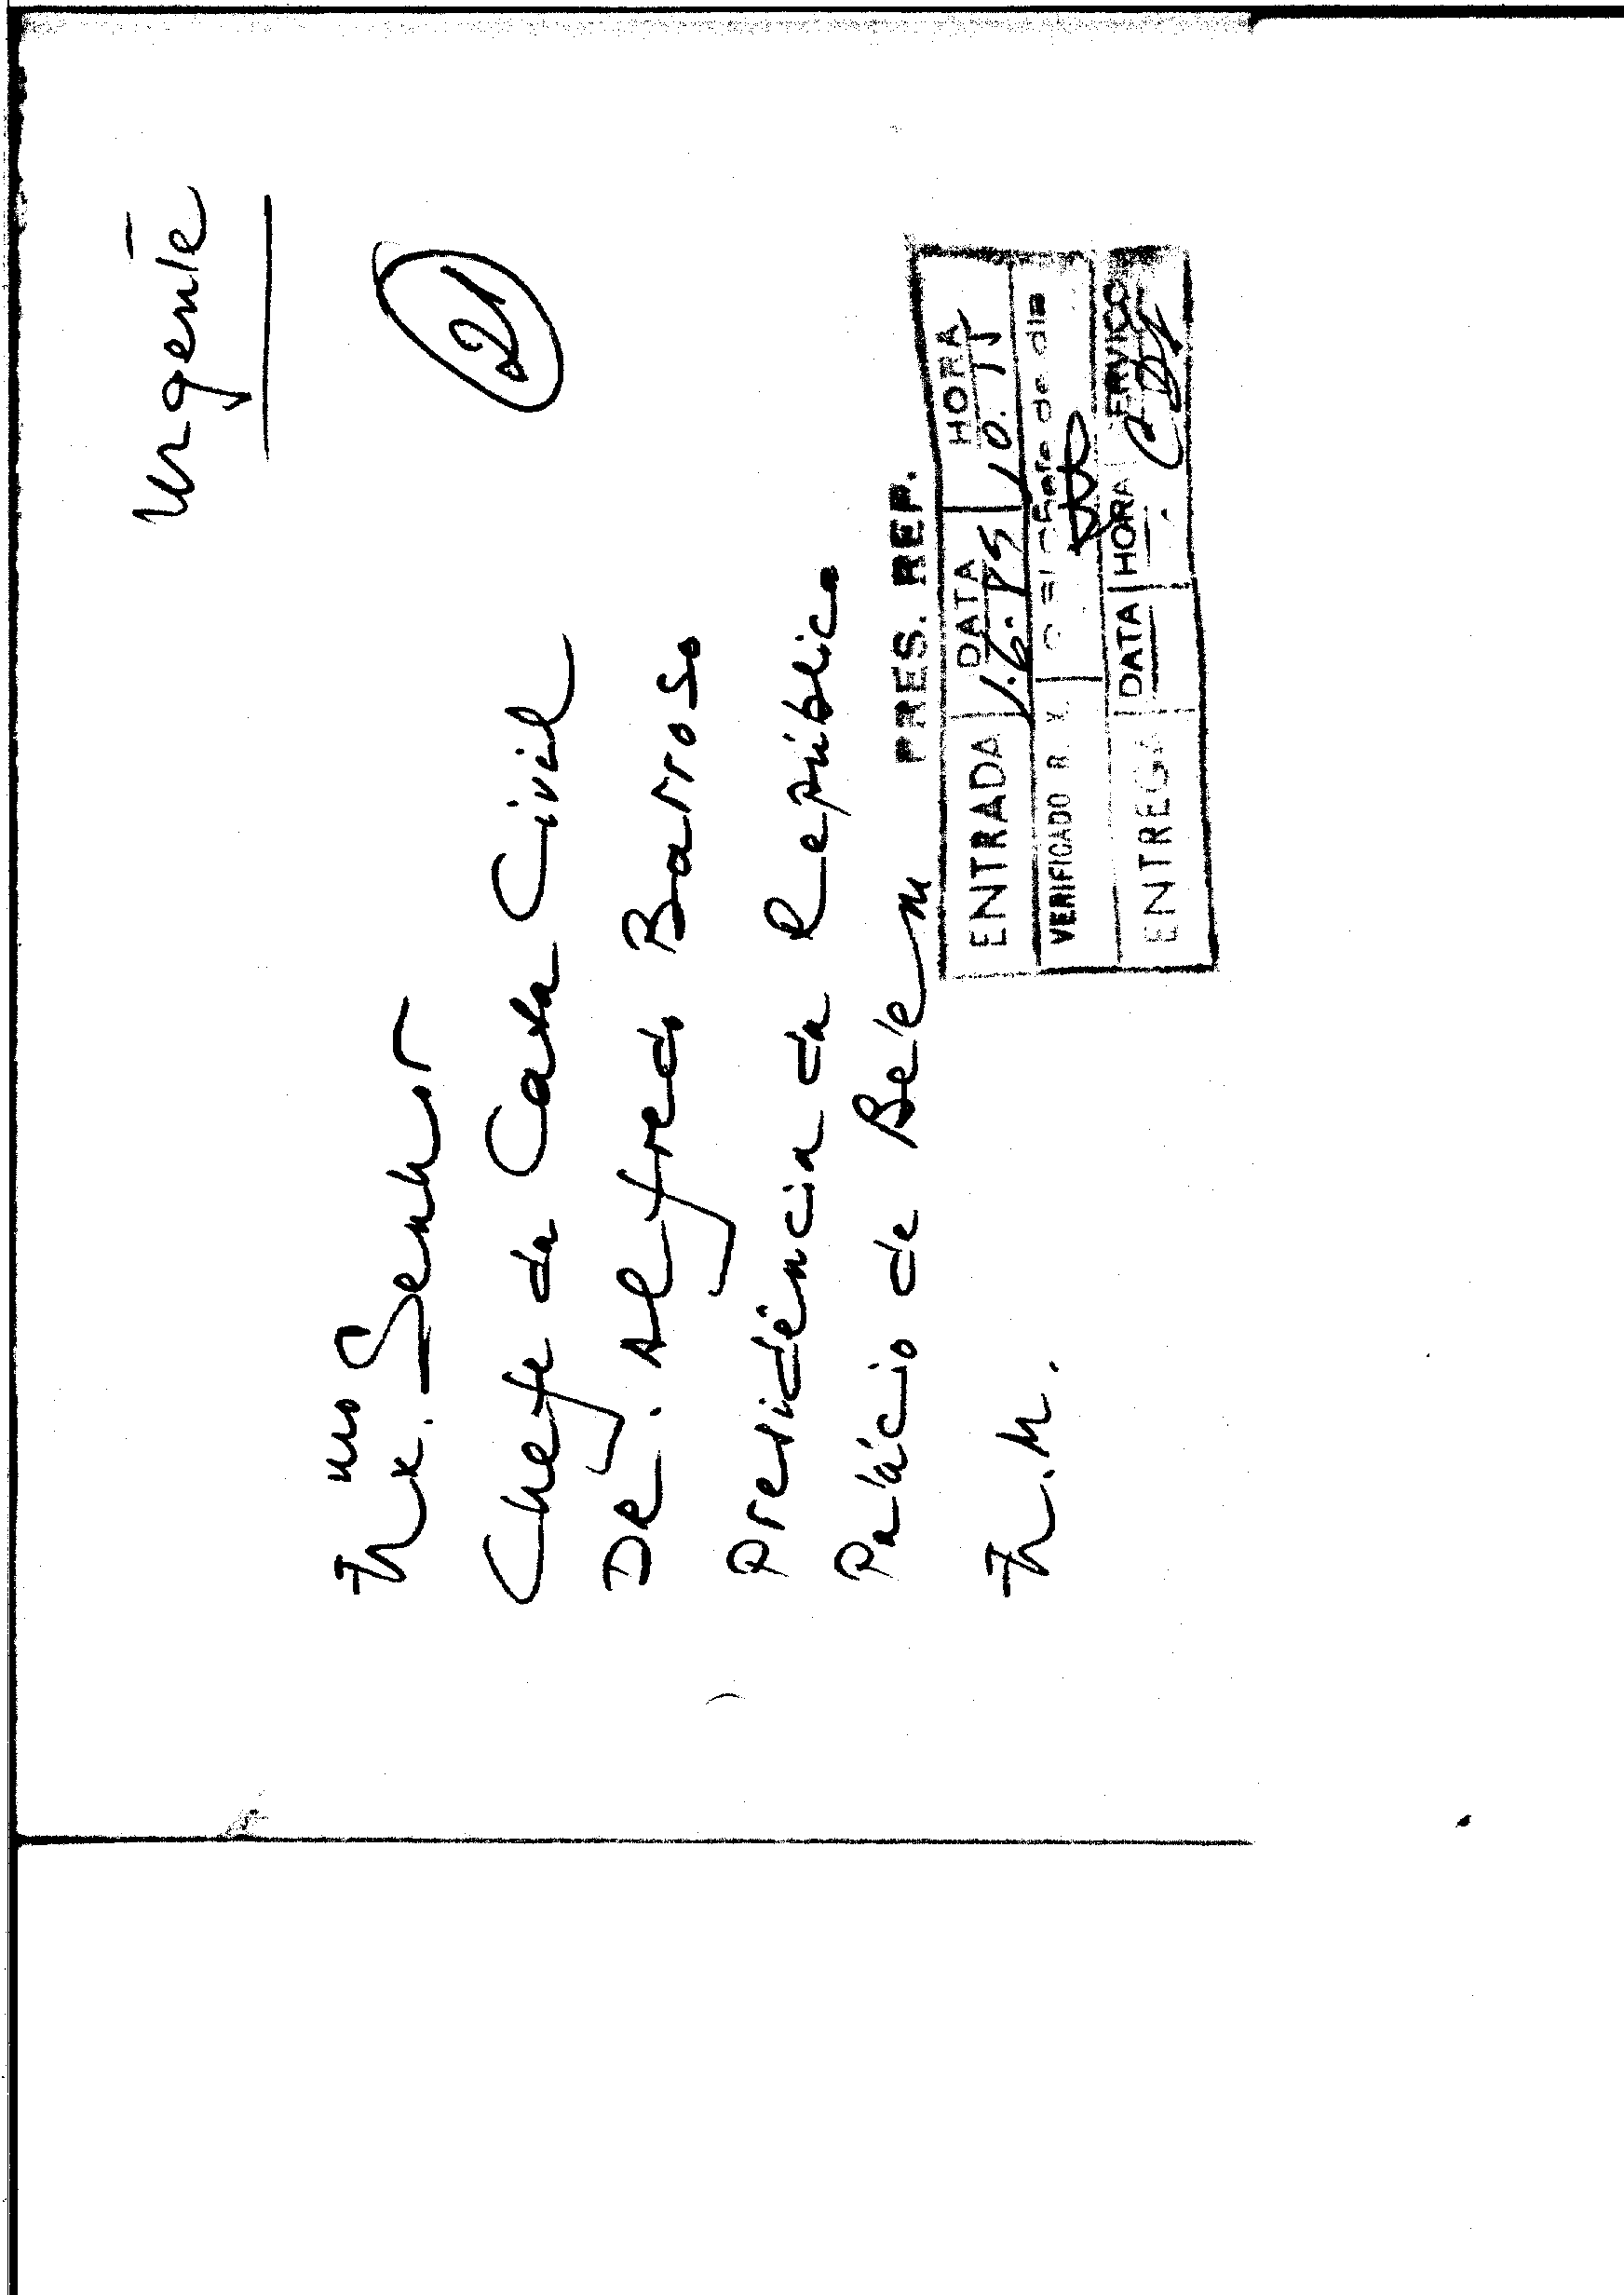 Urgente
21
Ex.mo Senhor
Chefe da Casa Civil
DR. Alfredo Barroso
Presidência da República
Palácio de Belém
E.M.
PRES. REP.
ENTRADA DATA HORA
VERIFICADO R. X. O Chefe de dia
ENTREGA DATA HORA SERVIÇO